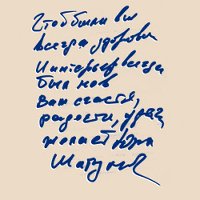 Чтоб были вы
всегда здоровы
И интерьер всегда
был нов
Вам счастья,
радости, удач
желает Юра
Шатунов